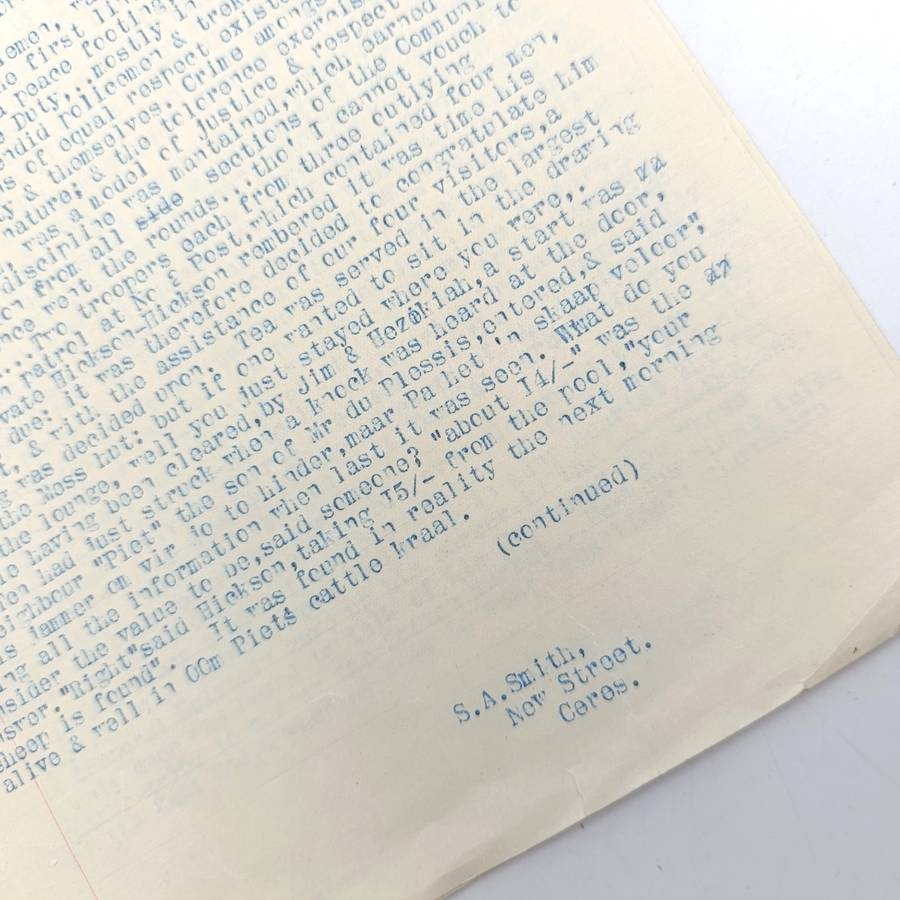 emen,
e first li
peace footing
e Duty,.. mostly in
endid policemen & trek
ns of equal respect existe
y & themselves. Crime amongs
nature; & the tolerence exercise
was a model of Justice & respect
discipline was mantained,which earned
on from all side sections of the Communi
nce went the rounds...tho' I cannot vouch to
...Two troopers each from three outlying
n patrol at No 2 Post,which contained four men,
vate Hickson-Hickson rembered it was time his
due: it was therefore decided to congratulate him
t, & with the assistance of our four visitors,a
g was decided upon. Tea was served in the largest
the Mess hut: but if one wanted to sit in the draring
the lounge, well you just stayed where you were,.
le having been cleared,by Jim & Hezekiah,a start was zz
Ten had just struck when a knock was heard at the door,
eighbour "Piet" the son of Mr du Plessis,entered,& said
is jammer om vir jo to hinder,maar Pa het 'n skaap veloor",
ing all the information when last it was seen. What do you
nsider the value to be,said someone? "about I4/-" was the zz
nswer. "Right"said Hickson,taking I5/- from the pool,"your
sheep is found". It was found in reality the next morning
alive & well in OOm Piets cattle kraal.
(continued)
S.A.Smith,
New Street.
Ceres.